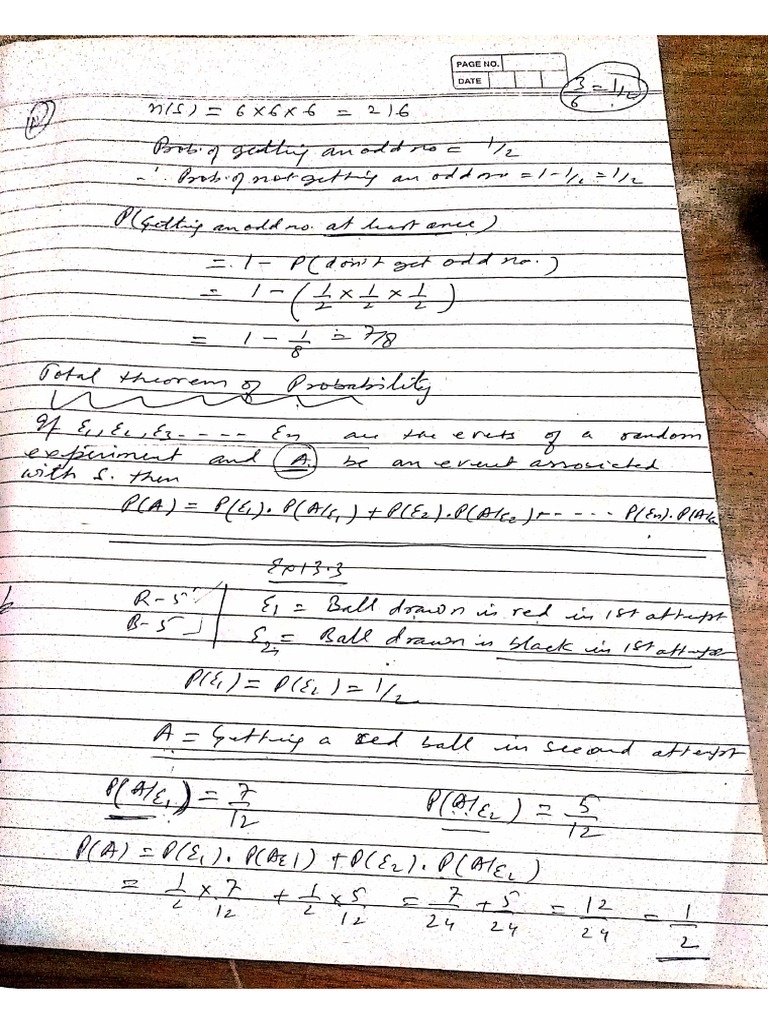 PAGE NO.
DATE
3/6 = 1/2
n(S) = 6 × 6 × 6 = 216
Prob. of getting an odd no = 1/2
∴ Prob. of not getting an odd no = 1 - 1/2 = 1/2
P(Getting an odd no. at least once)
= 1 - P(don't get odd no.)
= 1 - (1/2 × 1/2 × 1/2)
= 1 - 1/8 = 7/8
Total theorem of Probability
If E1, E2, E3 ---- En are the evets of a random
experiment and A be an event associated
with S. then
P(A) = P(E1). P(A/E1) + P(E2). P(A/E2) + ----- P(En). P(A/E
Ex 13.3
R - 5 E1 = Ball drawn is red in 1st attempt
B - 5 E2 = Ball drawn is black in 1st attempt
P(E1) = P(E2) = 1/2
A = Getting a red ball in second attempt
P(A/E1) = 7/12 P(A/E2) = 5/12
P(A) = P(E1). P(AE1) + P(E2). P(A/E2)
= 1/2 × 7/12 + 1/2 × 5/12 = 7/24 + 5/24 = 12/24 = 1/2